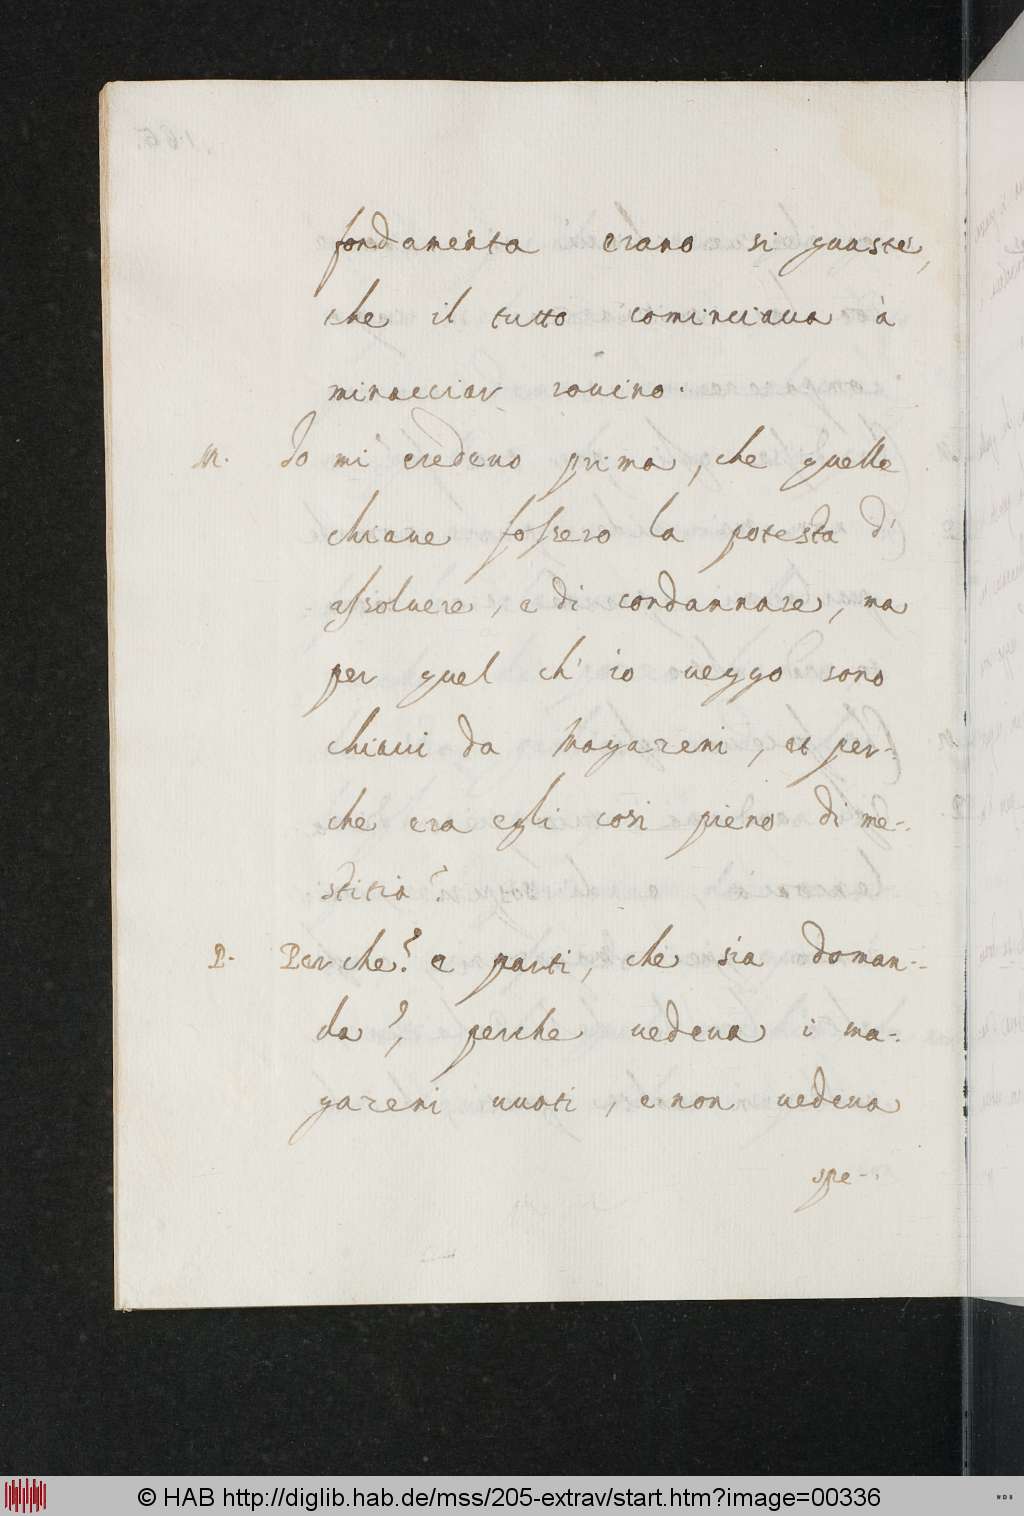 fondamenta erano si guaste,
che il tutto cominciaua à
minacciar rouina.
M. Io mi credeuo prima, che quelle
chiaue fossero la potestà d'
assoluere, e di condannare, ma
per quel ch' io ueggo sono
chiaui da Magazeni, et per-
che era egli così pieno di me-
stitia?
P. Perche? e parti, che sia doman-
da?, perche uedeua i ma-
gazeni uuoti, e non uedeua
spe-
© HAB http://diglib.hab.de/mss/205-extrav/start.htm?image=00336